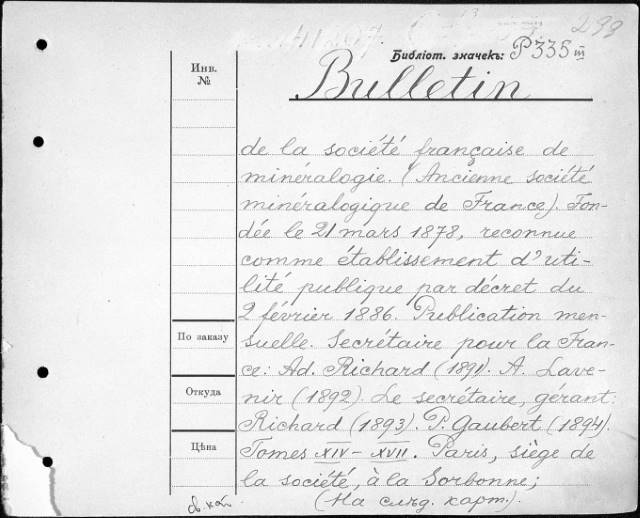 299
Библіот. значекъ: P335 III
Bulletin
Инв.
№
de la société française de
minéralogie. (Ancienne société
minéralogique de France). Fon-
dée le 21 mars 1878, reconnue
comme établissement d'uti-
lité publique par décret du
2 février 1886. Publication men-
suelle. Secrétaire pour la Fran-
ce: Ad. Richard (1891). A. Lave-
nir (1892). Le secrétaire, gérant:
Richard (1893). P. Gaubert (1894).
Tomes XIV-XVII. Paris, siège de
la société, à la Sorbonne;
(На слѣд. карт.).
По заказу
Откуда
Цѣна